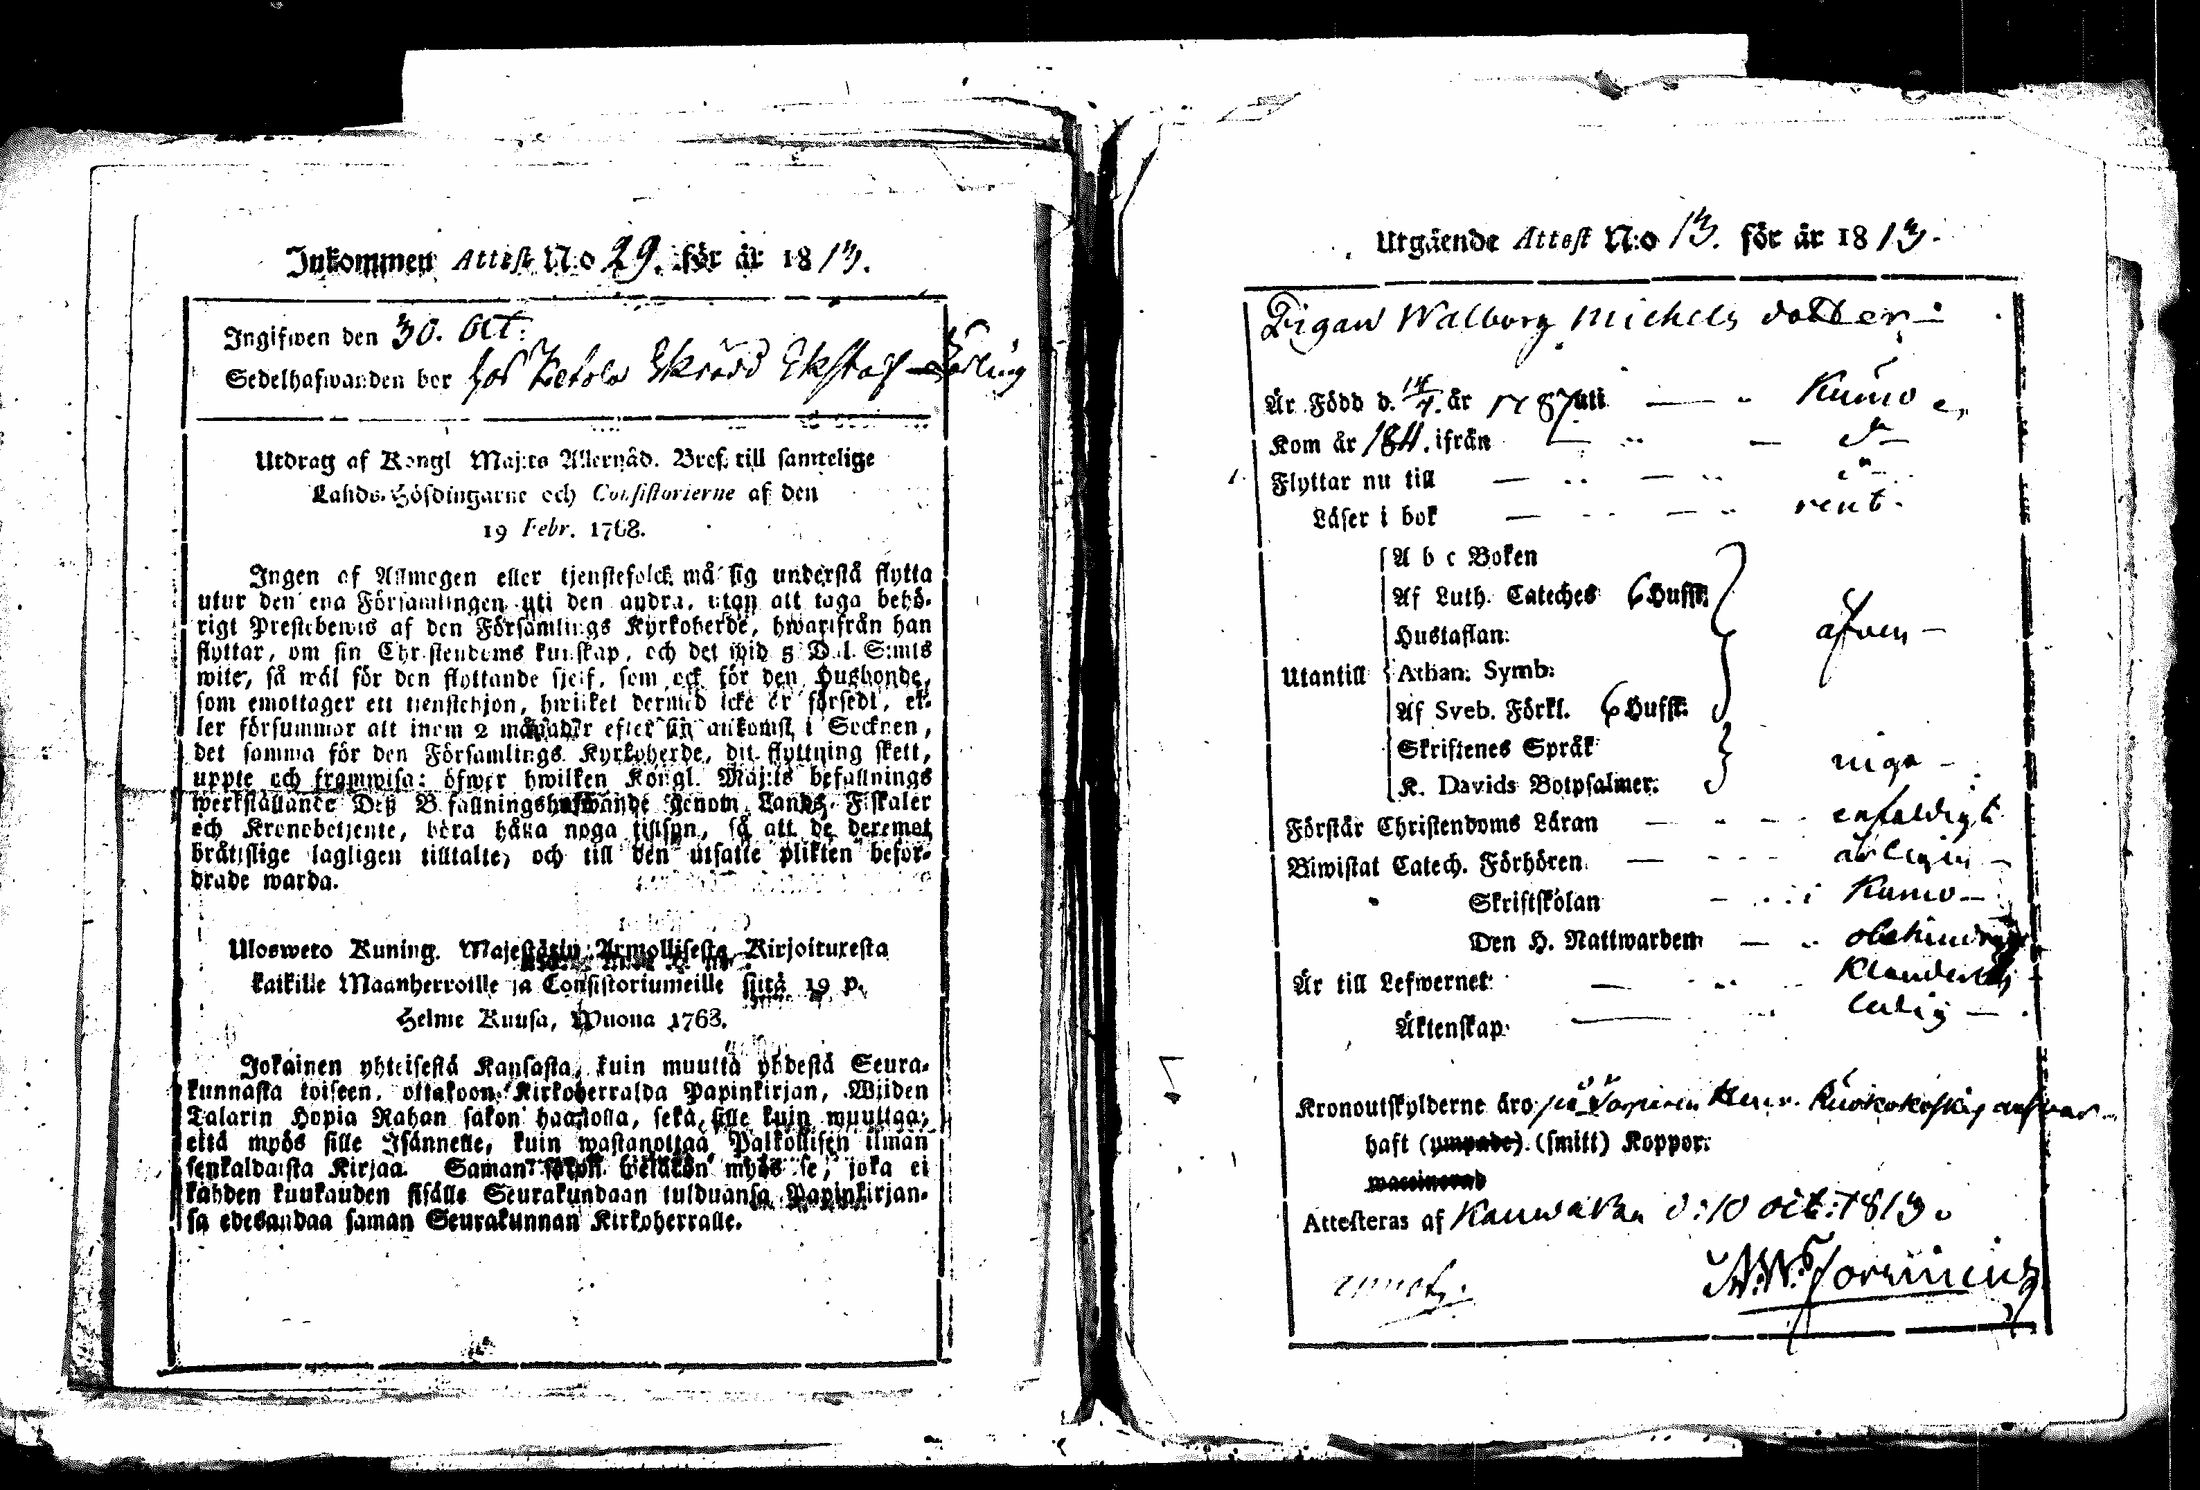 Inkommen Attest N:o 29. för år 1813.
Ingifwen den 30. Oct:
Sedelhafwanden bor hos Ketola
Utdrag af Kongl Maj:ts Allernåd. Bref till samtelige
Lands-Höfdingarne och Consistorierne af den
19 Febr. 1768.
Ingen af Allmogen eller tjenstefolck må sig understå flytta
utur den ena Församlingen uti den andra, utan att taga behö-
rigt Prestebewis af den Församlings Kyrkoherde, hwarifrån han
flyttar, om sin Christendoms kunskap, och det wid 5 Dal. S:mts
wite, så wäl för den flyttande sjelf, som ock för den Husbonde,
som emottager ett tienstehjon, hwilket dermed icke är försedt, el-
ler försummar att inom 2 månader efter sin ankomst i Socknen,
det samma för den Församlings Kyrkoherde, dit flyttning skett,
uppte och framwisa: öfwer hwilken Kongl. Maj:ts befallnings
werkställande Deß Befallningshafwande genom Lands-Fiskaler
och Kronobetjente, böra hålla noga tillsyn, så att de deremot
bråtslige lagligen tilltalte, och till den utsatte plikten befor-
drade warda.
Ulosweto Kuning. Majestätin Armollisesta Kirjoituresta
kaikille Maanherroille ja Consistoriumeille siitä 19 p.
Helme Kuusa, Wuona 1768.
Jokainen yhteisestä Kansasta, kuin muuttaa yhdestä Seura-
kunnasta toiseen, ottakoon Kirkoherralda Papinkirjan, Wiiden
Talarin Hopia Rahan sakon haastolla, sekä sille kuin muuttaa,
että myös sille Isännelle, kuin wastanottaa Palkollisen ilman
senkaldaista Kirjaa. Saman sakon wetäkön myös se, joka ei
kahden kuukauden sisälle Seurakundaan tulduansa Papinkirjan-
sa edesandaa saman Seurakunnan Kirkoherralle.
Utgående Attest N:o 13. för år 1813.
Pigan Walborg Michels dotter
Är Född d. 14/4. år 1787 uti Kumo
Kom år ifrån do
Flyttar nu till do
Läser i bok rent.
A b c Boken
Af Luth. Cateches 6 Hufst.
Hustaflan:
Utantill Athan: Symb: äfven
Af Sveb. Förkl. 6 Hufst.
Skriftenes Språk
K. Davids Botpsalmer: niga
Förstår Christendoms Läran enfaldigt
Biwistat Catech. Förhören årligen
Skriftskolan i Kumo
Den H. Nattwarden obehindrad
Är till Lefwernet klanderlös
Äktenskap: ledig
Kronoutskylderne äro på
haft (ympade) (smitt) Koppor:
waccinerad
Attesteras af Kauwatsa d: 10 oct: 1813.